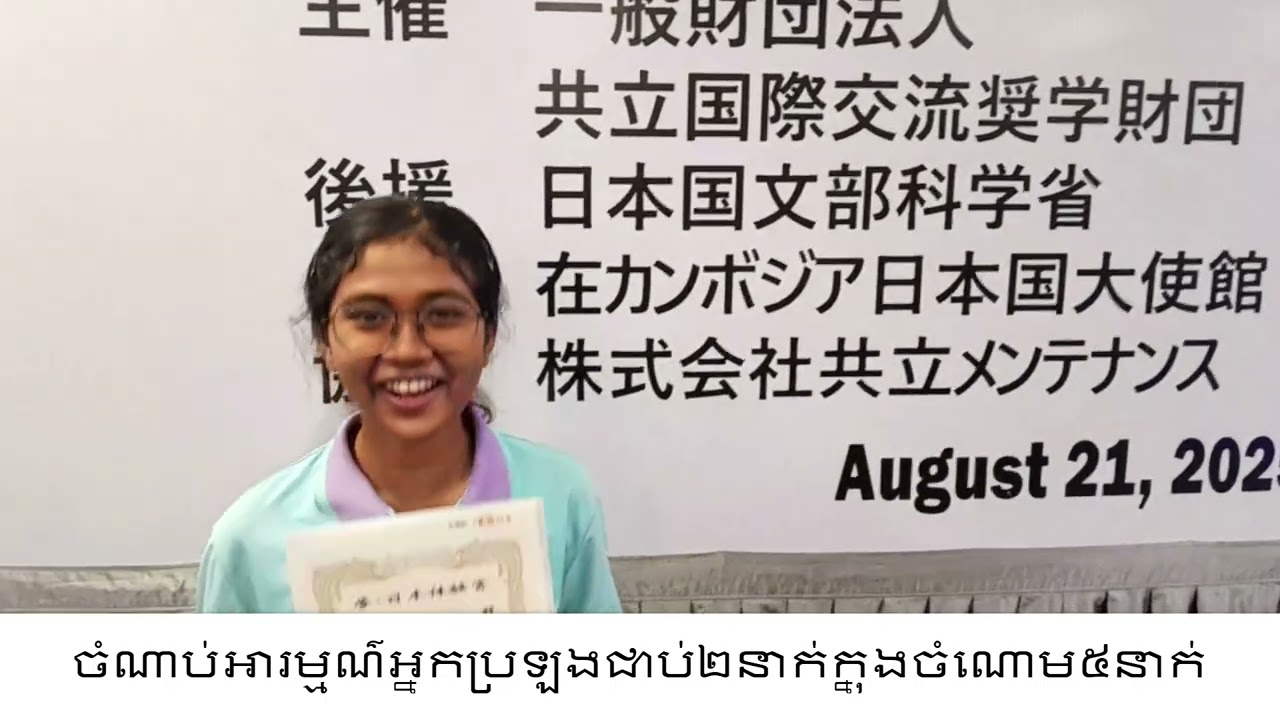 主催 一般財団法人
共立国際交流奨学財団
後援 日本国文部科学省
在カンボジア日本国大使館
株式会社共立メンテナンス
August 21, 202
ចំណាប់អារម្មណ៍អ្នកប្រឡងជាប់២នាក់ក្នុងចំណោម៥នាក់